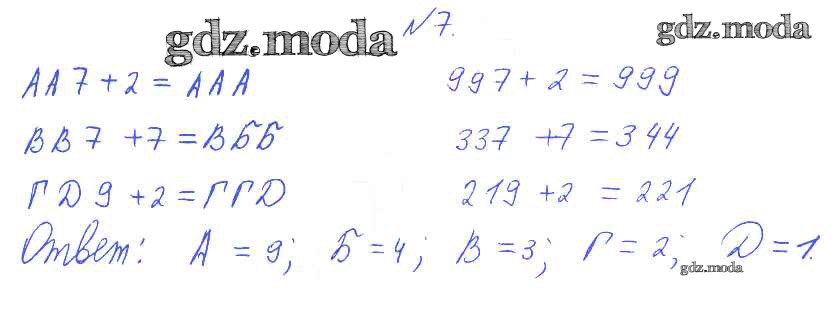 gdz.moda №7. gdz.moda
АА7 + 2 = ААА 997 + 2 = 999
ВВ7 + 7 = ВББ 337 + 7 = 344
ГД9 + 2 = ГГД 219 + 2 = 221
Ответ: А = 9; Б = 4; В = 3; Г = 2; Д = 1.
gdz.moda